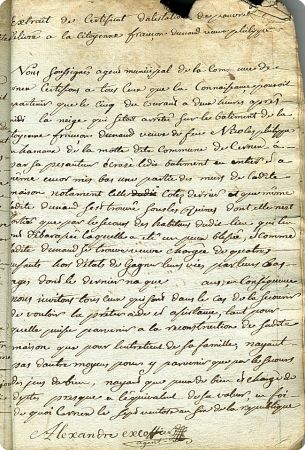 Extrait de Certificat d'atestation de pauvreté
delivré a la citoyenne françoise durand veuve philippe

Nous soussignés agent municipal de la Commune de
Cernex Certifions a tous ceux que la Connaissance pouroit
partenir que le cinq du Courant a deux heures après
midi la neige qui s'était arrêté sur les bâtiment de la
citoyenne françoise durand veuve de feu Nicolas philippe
hameau de la motte dite Commune de Cernex a
par sa pesanteur écrasé ledit batiment en entier et a
même encor mis bas une partie des murs de ladite
maison notament du Coté et que même
ladite durand s'est trouvé sous les ruines dont elle n'est
sortie que par les secours des habitans dudit lieu qui l'en
ont débarassée laquelle a été un peu blessée, Comme
ladite durand se trouve veuve chargée de quatre
enfants hor d'états de gagner leurs vies par leurs bas
ages dont le dernier na que ans en Conséquence
nous invitons tous ceux qui sont dans le cas de la secourir
de vouloir la prêter aide et assistance, tant pour
quelle puisse parvenir a la reconstruction de sadite
maison que pour l'entretien de sa famille, nayant
pas d'autre moyens pour y parvenir que par les secours
des gens de bien, nayant que peu de bien et chargé de
dettes presque a lequivalent de sa valeur, en foi
de quoi Cernex le sept ventose an six de la republique

Alexandre excoffier
agent